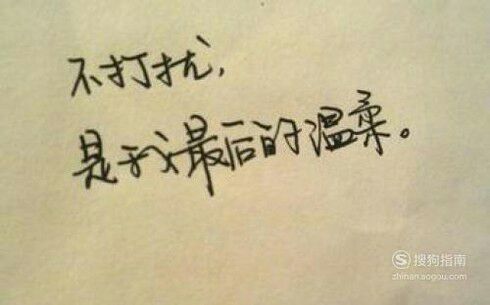 不打扰，
是我最后的温柔。
S 搜狗指南
zhinan.sogou.com